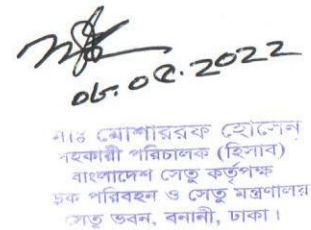 ০৮.০৫.২০২২
মোঃ মোশাররফ হোসেন
সহকারী পরিচালক (হিসাব)
বাংলাদেশ সেতু কর্তৃপক্ষ
সড়ক পরিবহন ও সেতু মন্ত্রণালয়
সেতু ভবন, বনানী, ঢাকা।